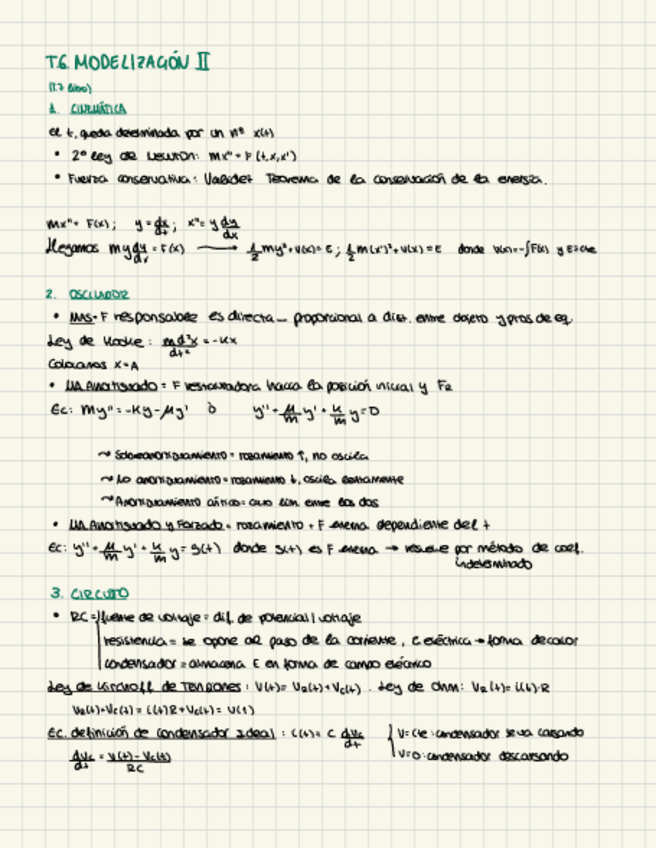 T.6. MODELIZACIÓN II
(1.7 libro)
1. CINEMÁTICA
el t, queda determinada por un nº x(t)
• 2º ley de Newton: mx'' = F(t,x,x')
• Fuerza conservativa: Validet Teorema de la conservación de la energía.
mx'' = F(x); y = dx/dt; x'' = y dy/dx
Llegamos my dy/dx = F(x) → 1/2 my² + V(x) = E; 1/2 m(x')² + V(x) = E donde V(x) = -∫F(x) y E = cte
2. OSCILADOR
• MAS = F responsable es directa_ proporcional a dist. entre objeto y pros de eq.
Ley de Hooke: m d²x/dt² = -Kx
Colocamos x = A
• MA Amortiguado = F restauradora hacia la posición inicial y Fe
Ec: my'' = -Ky - μy' ò y'' + μ/m y' + k/m y = 0
~ Sobreamortiguamiento = rozamiento ↑, no oscila
~ Lo amortiguamiento = rozamiento ↓, oscila lentamente
~ Amortiguamiento crítico = caso lím entre los dos
• MA Amortiguado y Forzado = rozamiento + F externa dependiente del t
Ec: y'' + μ/m y' + k/m y = g(t) donde g(t) es F externa → resuelve por método de coef. indeterminado
3. CIRCUITO
• RC = fuente de voltaje = dif. de potencial / voltaje
resistencia = se opone al paso de la corriente, E eléctrica → forma de calor
condensador = almacena E en forma de campo eléctrico
Ley de Kirchoff de Tensiones: V(t) = VR(t) + Vc(t). Ley de Ohm: VR(t) = i(t)·R
VR(t) + Vc(t) = i(t)R + Vc(t) = V(t)
Ec. definición de condensador ideal: i(t) = C dVc/dt V = cte: condensador se va cargando
dVc/dt = V(t) - Vc(t)/RC V = 0: condensador descargando